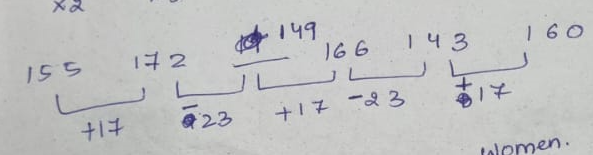 x2
155 172 149 166 143 160
+17 -23 +17 -23 +17
women.